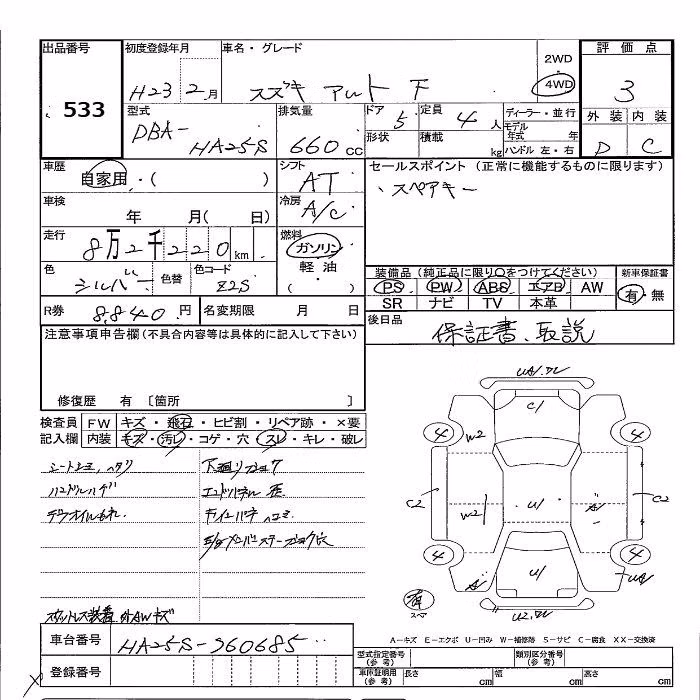 出品番号
533
初度登録年月
H23 2月
車名・グレード
スズキ アルト F
2WD
4WD
評価点
3
外装 内装
D C
型式
DBA-
HA25S
排気量
660cc
ドア
5
形状
定員
4人
積載
kg
ディーラー・並行
モデル年式 年
ハンドル 左・右
車歴
自家用・( )
シフト
AT
セールスポイント (正常に機能するものに限ります)
、スペアキー
車検
年 月( 日)
冷房
A/C
走行
8万2千220km
燃料
ガソリン
軽油
( )
色
シルバー
色替
色コード
Z2S
装備品(純正品に限り○をつけてください)
PS PW ABS エアB AW
SR ナビ TV 本革
新車保証書
有・無
R券
8,840円
名変期限 月 日
後日品
保証書、取説
注意事項申告欄(不具合内容等は具体的に記入して下さい)
修復歴 有 〔箇所 〕
検査員記入欄
FW キズ・飛石・ヒビ割・リペア跡・×要
内装 キズ・汚レ・コゲ・穴・スレ・キレ・破レ
ハンドルハゲ
C1
W2
W2
4
4
4
4
C2
C2
U1
U1
A1
スペア
車台番号
HA25S-960685
登録番号
A-キズ E-エクボ U-凹み W-補修跡 S-サビ C-腐食 XX-交換済
型式指定番号(参考)
類別区分番号(参考)
車庫証明用(参考) 長さ cm 幅 cm 高さ cm